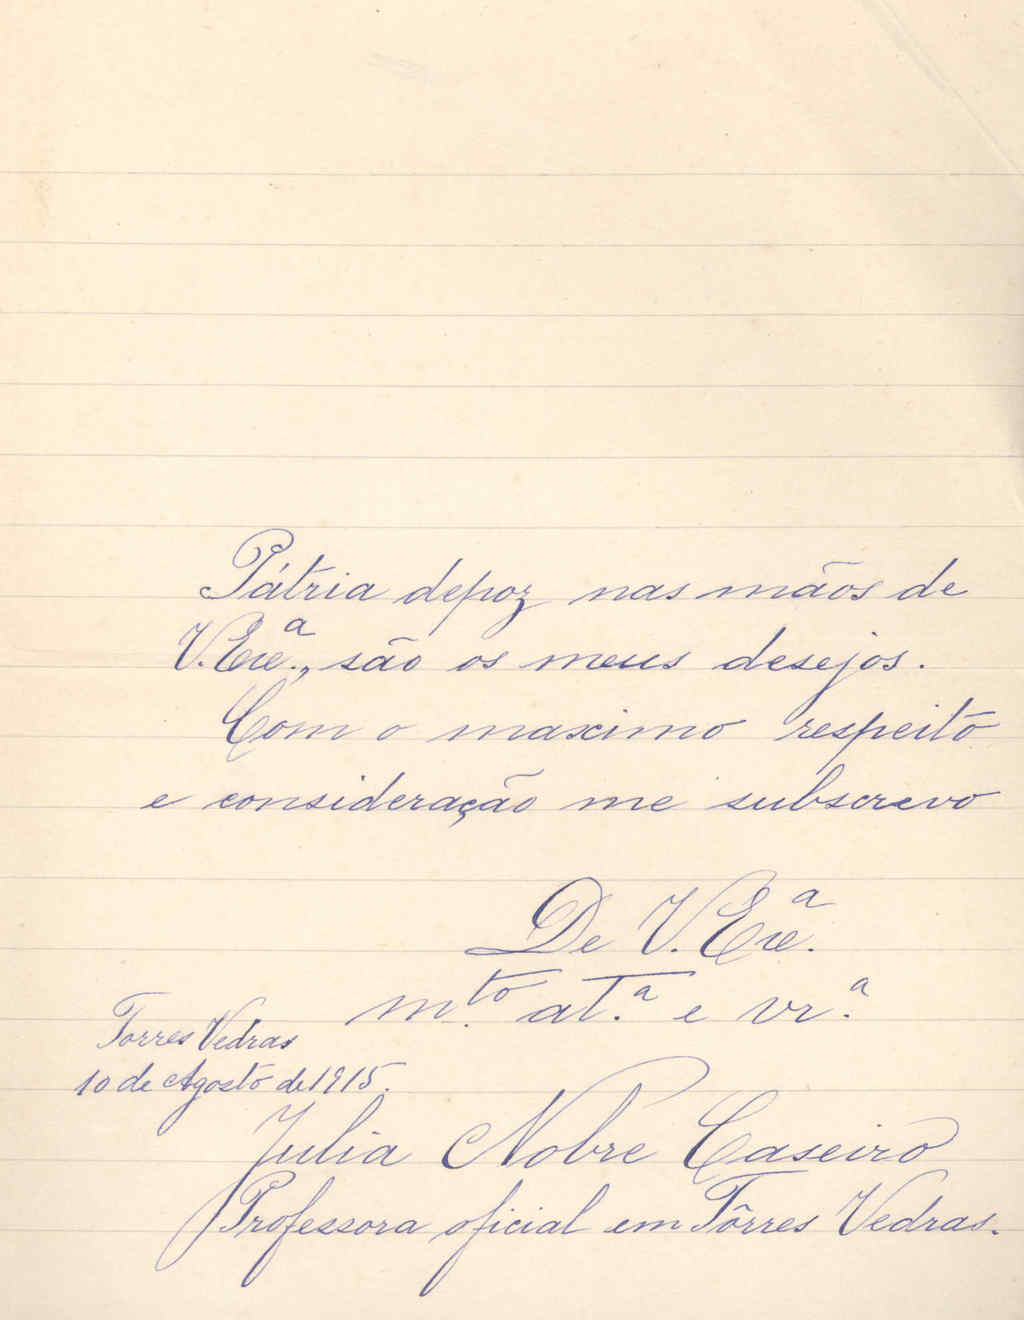 Pátria depoz nas mãos de
V. Exc.ª, são os meus desejos.
Com o maximo respeito
e consideração me subscrevo
De V. Exc.ª
m.to at.ª e vr.ª
Torres Vedras
10 de Agosto de 1915.
Julia Nobre Caseiro
Professora oficial em Tôrres Vedras.